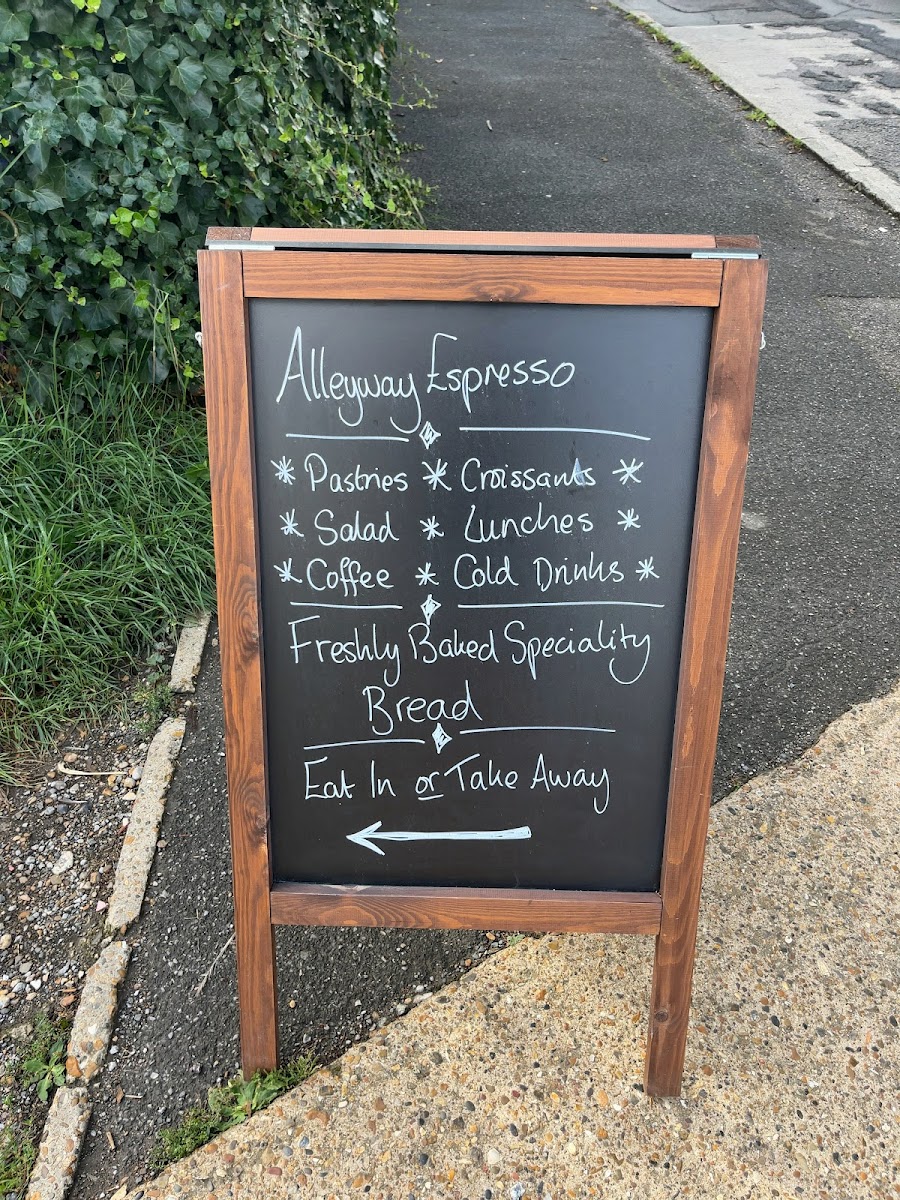 Alleyway Espresso
* Pastries * Croissants *
* Salad * Lunches *
* Coffee * Cold Drinks *
Freshly Baked Speciality
Bread
Eat In or Take Away